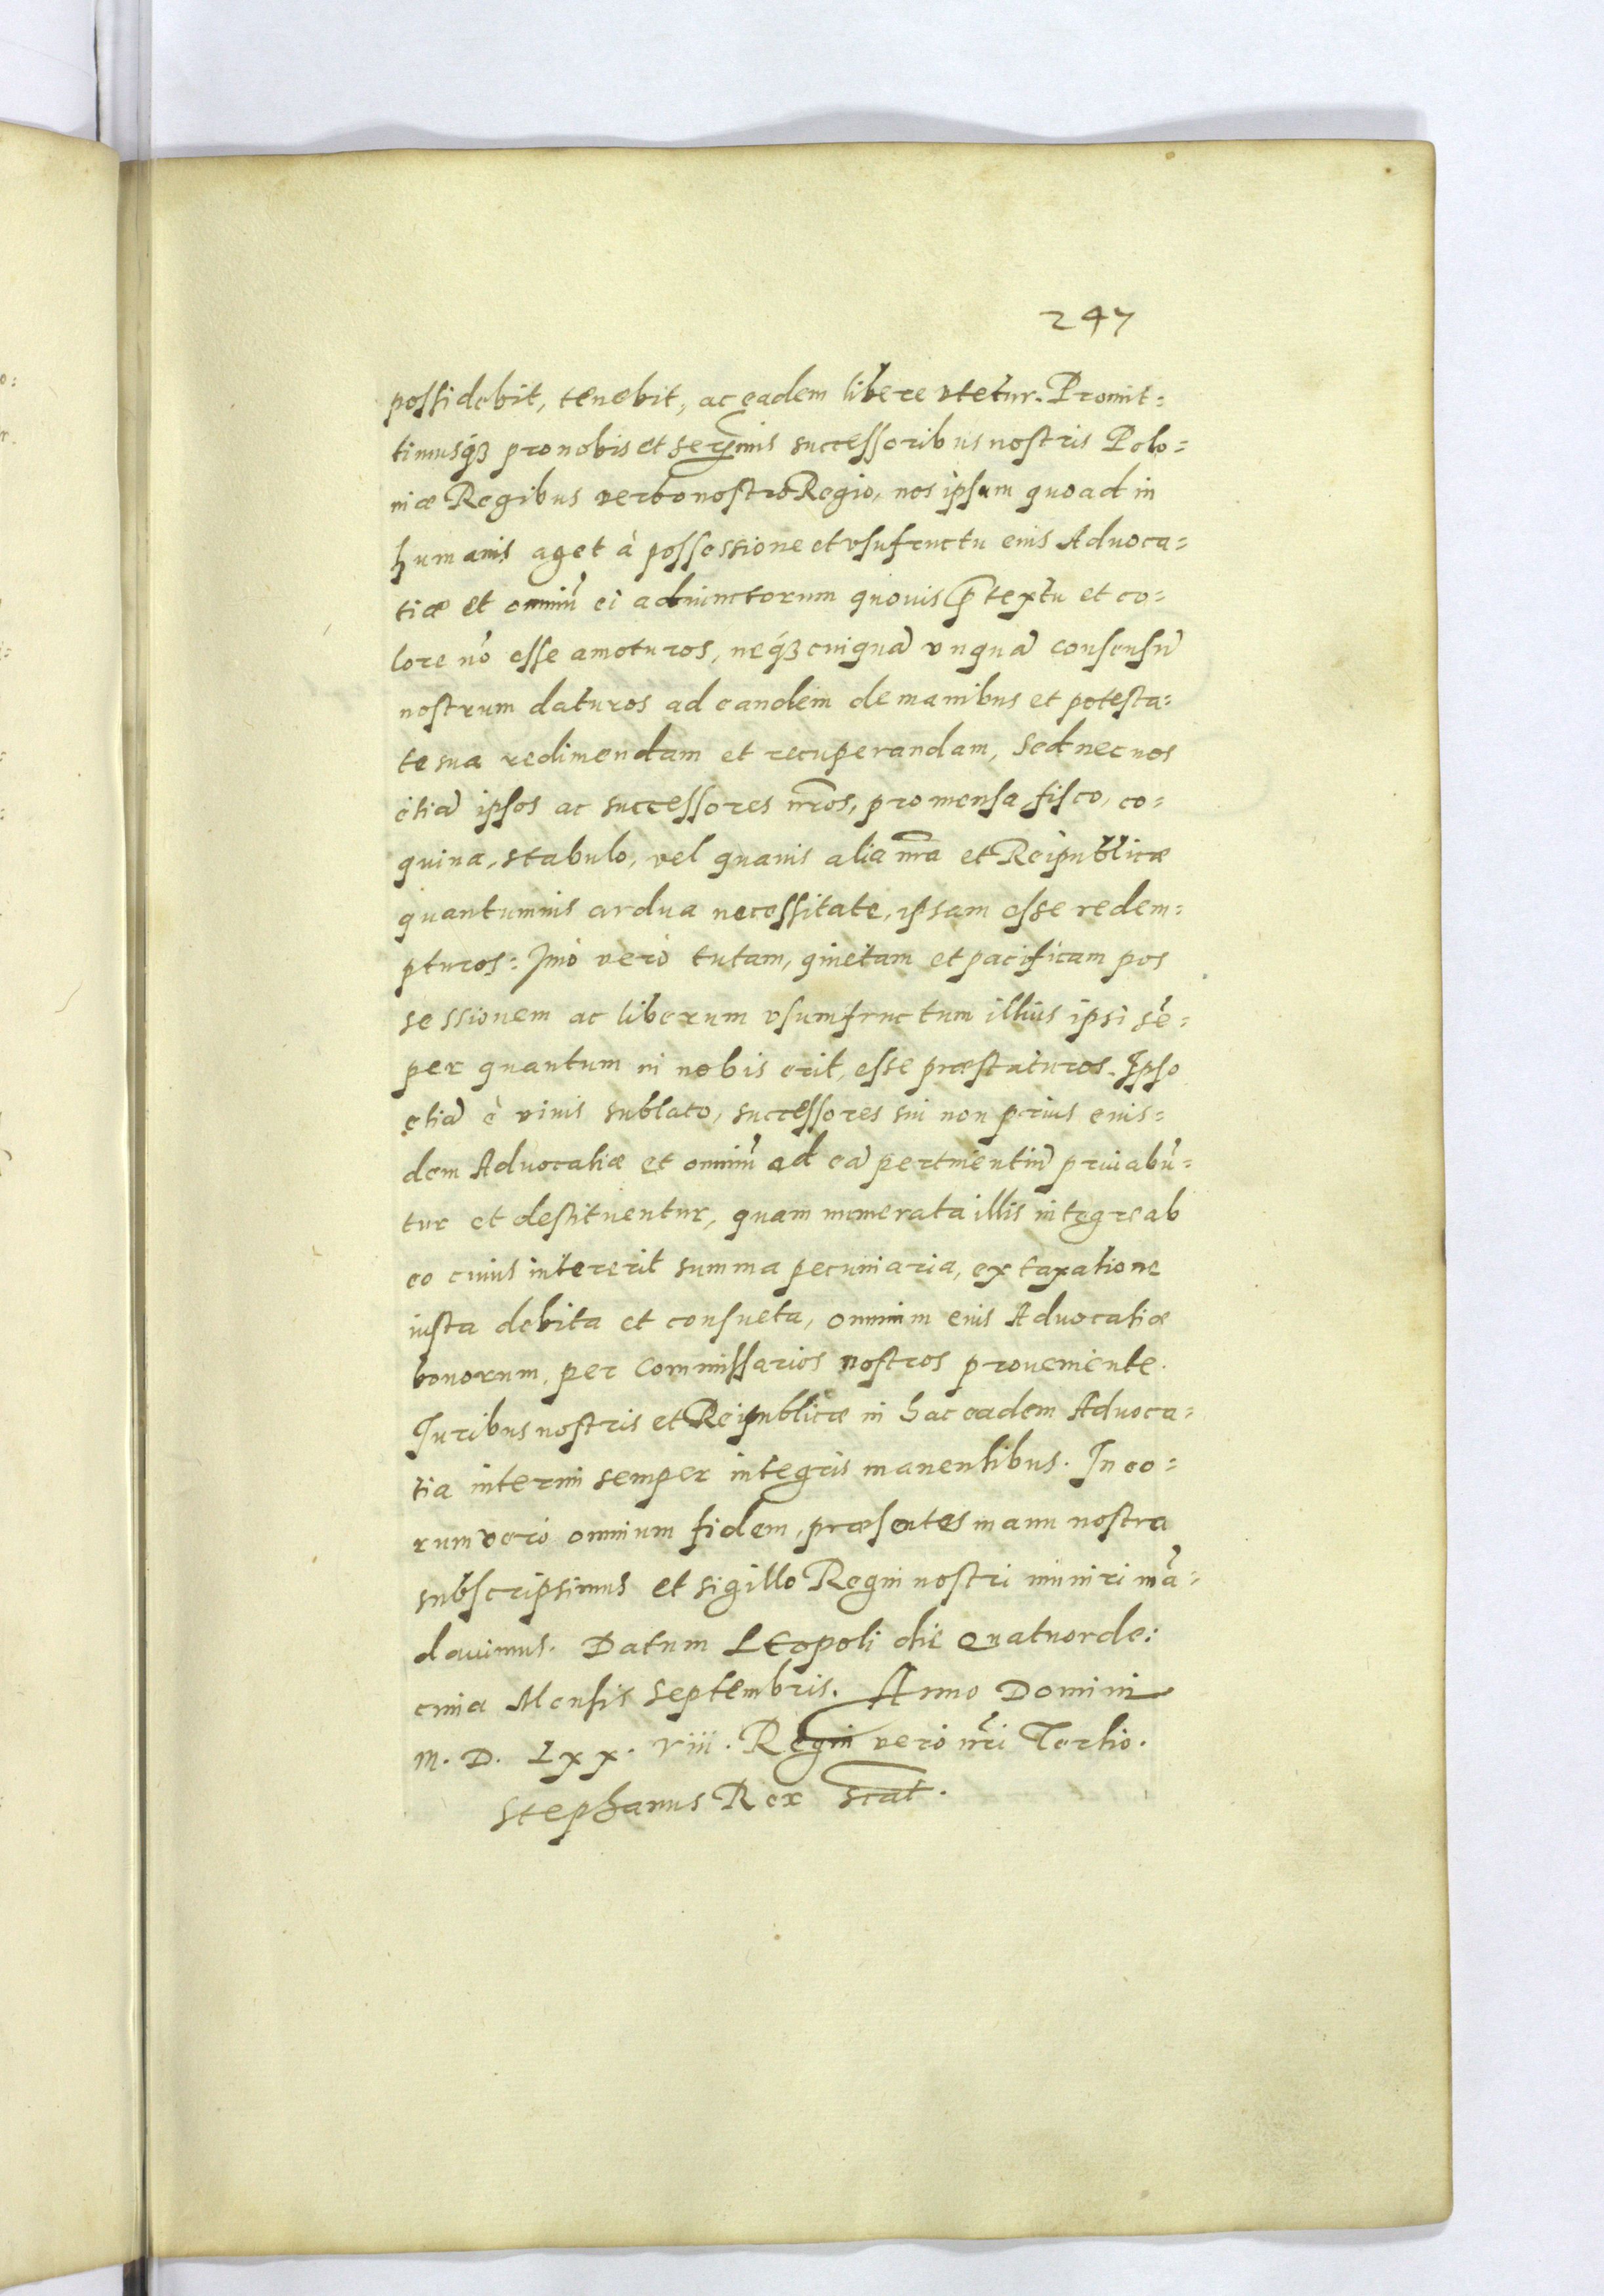 247
possidebit, tenebit, ac eadem libere vtetur. Promit=
timusq́ꝫ pro nobis et serẽmis successoribus nostris Polo=
niæ Regibus verbo nostro Regio, nos ipsum quoad in
humanis aget à possessione et vsufructu eius Aduoca=
tiæ et omniũ ei adiunctorum quouis p̃textu et co=
lore nõ esse amoturos, neq́ꝫ cuiquã vnquã consensũ
nostrum daturos ad eandem de manibus et potesta=
te sua redimendam et recuperandam, sed nec nos
etiã ipsos ac successores nr̃os, pro mensa fisco, co=
quina, stabulo, vel quauis alia nr̃a et Reipublicæ
quantumuis ardua necessitate, ipsam esse redem=
pturos: Imò verò tutam, quietam et pacificam pos
sessionem ac liberum vsumfructum illius ipsi sẽ=
per quantum in nobis erit, esse præstaturos. Ipso
etiã è viuis sublato, successores sui non prius eius=
dem Aduocatiæ et omniũ ad eã pertinentiũ priuabũ=
tur et destituentur, quam numerata illis integre ab
eo cuius intererit summa pecuniaria, ex taxatione
iusta debita et consueta, omnium eius Aduocatiæ
bonorum, per Commissarios nostros proueniente.
Iuribus nostris et Reipublicæ in hac eadem Aduoca=
tia interim semper integris manentibus. In eo=
rum vero omnium fidem, præsentes manu nostra
subscripsimus et sigillo Regni nostri muniri mã=
dauimus. Datum Leopoli die Quatuorde:
cima Mensis Septembris. Anno Domini
M. D. Lxx. viii. Regni verò nr̃i Tertio.
Stephanus Rex scat̃.